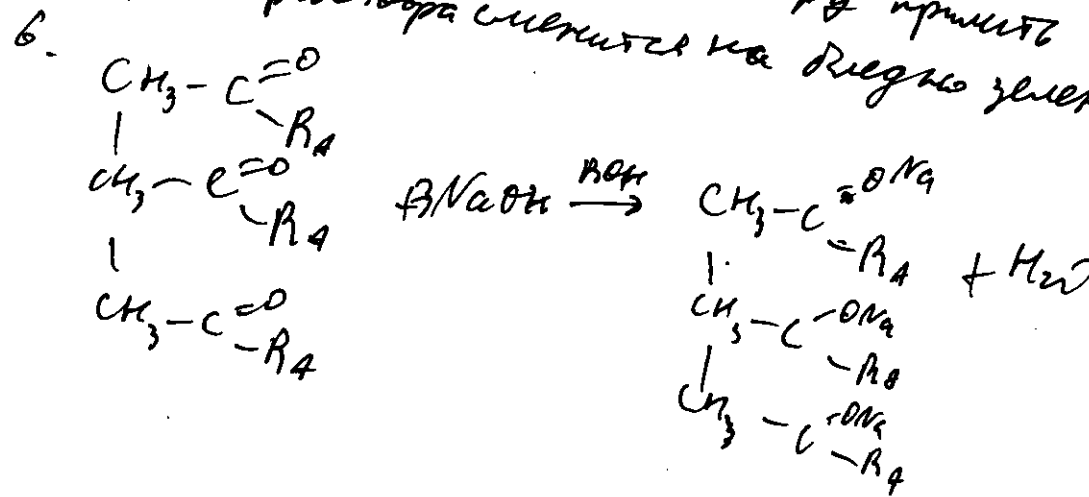 раствора сменится на бледно зеле
прилить
6.
CH₃-C=O
R₄
CH₃-C=O
R₄
CH₃-C=O
R₄
3NaOH ROH →
CH₃-C=ONa
R₄ + H₂O
CH₃-C-ONa
R₄
CH₃-C-ONa
R₄